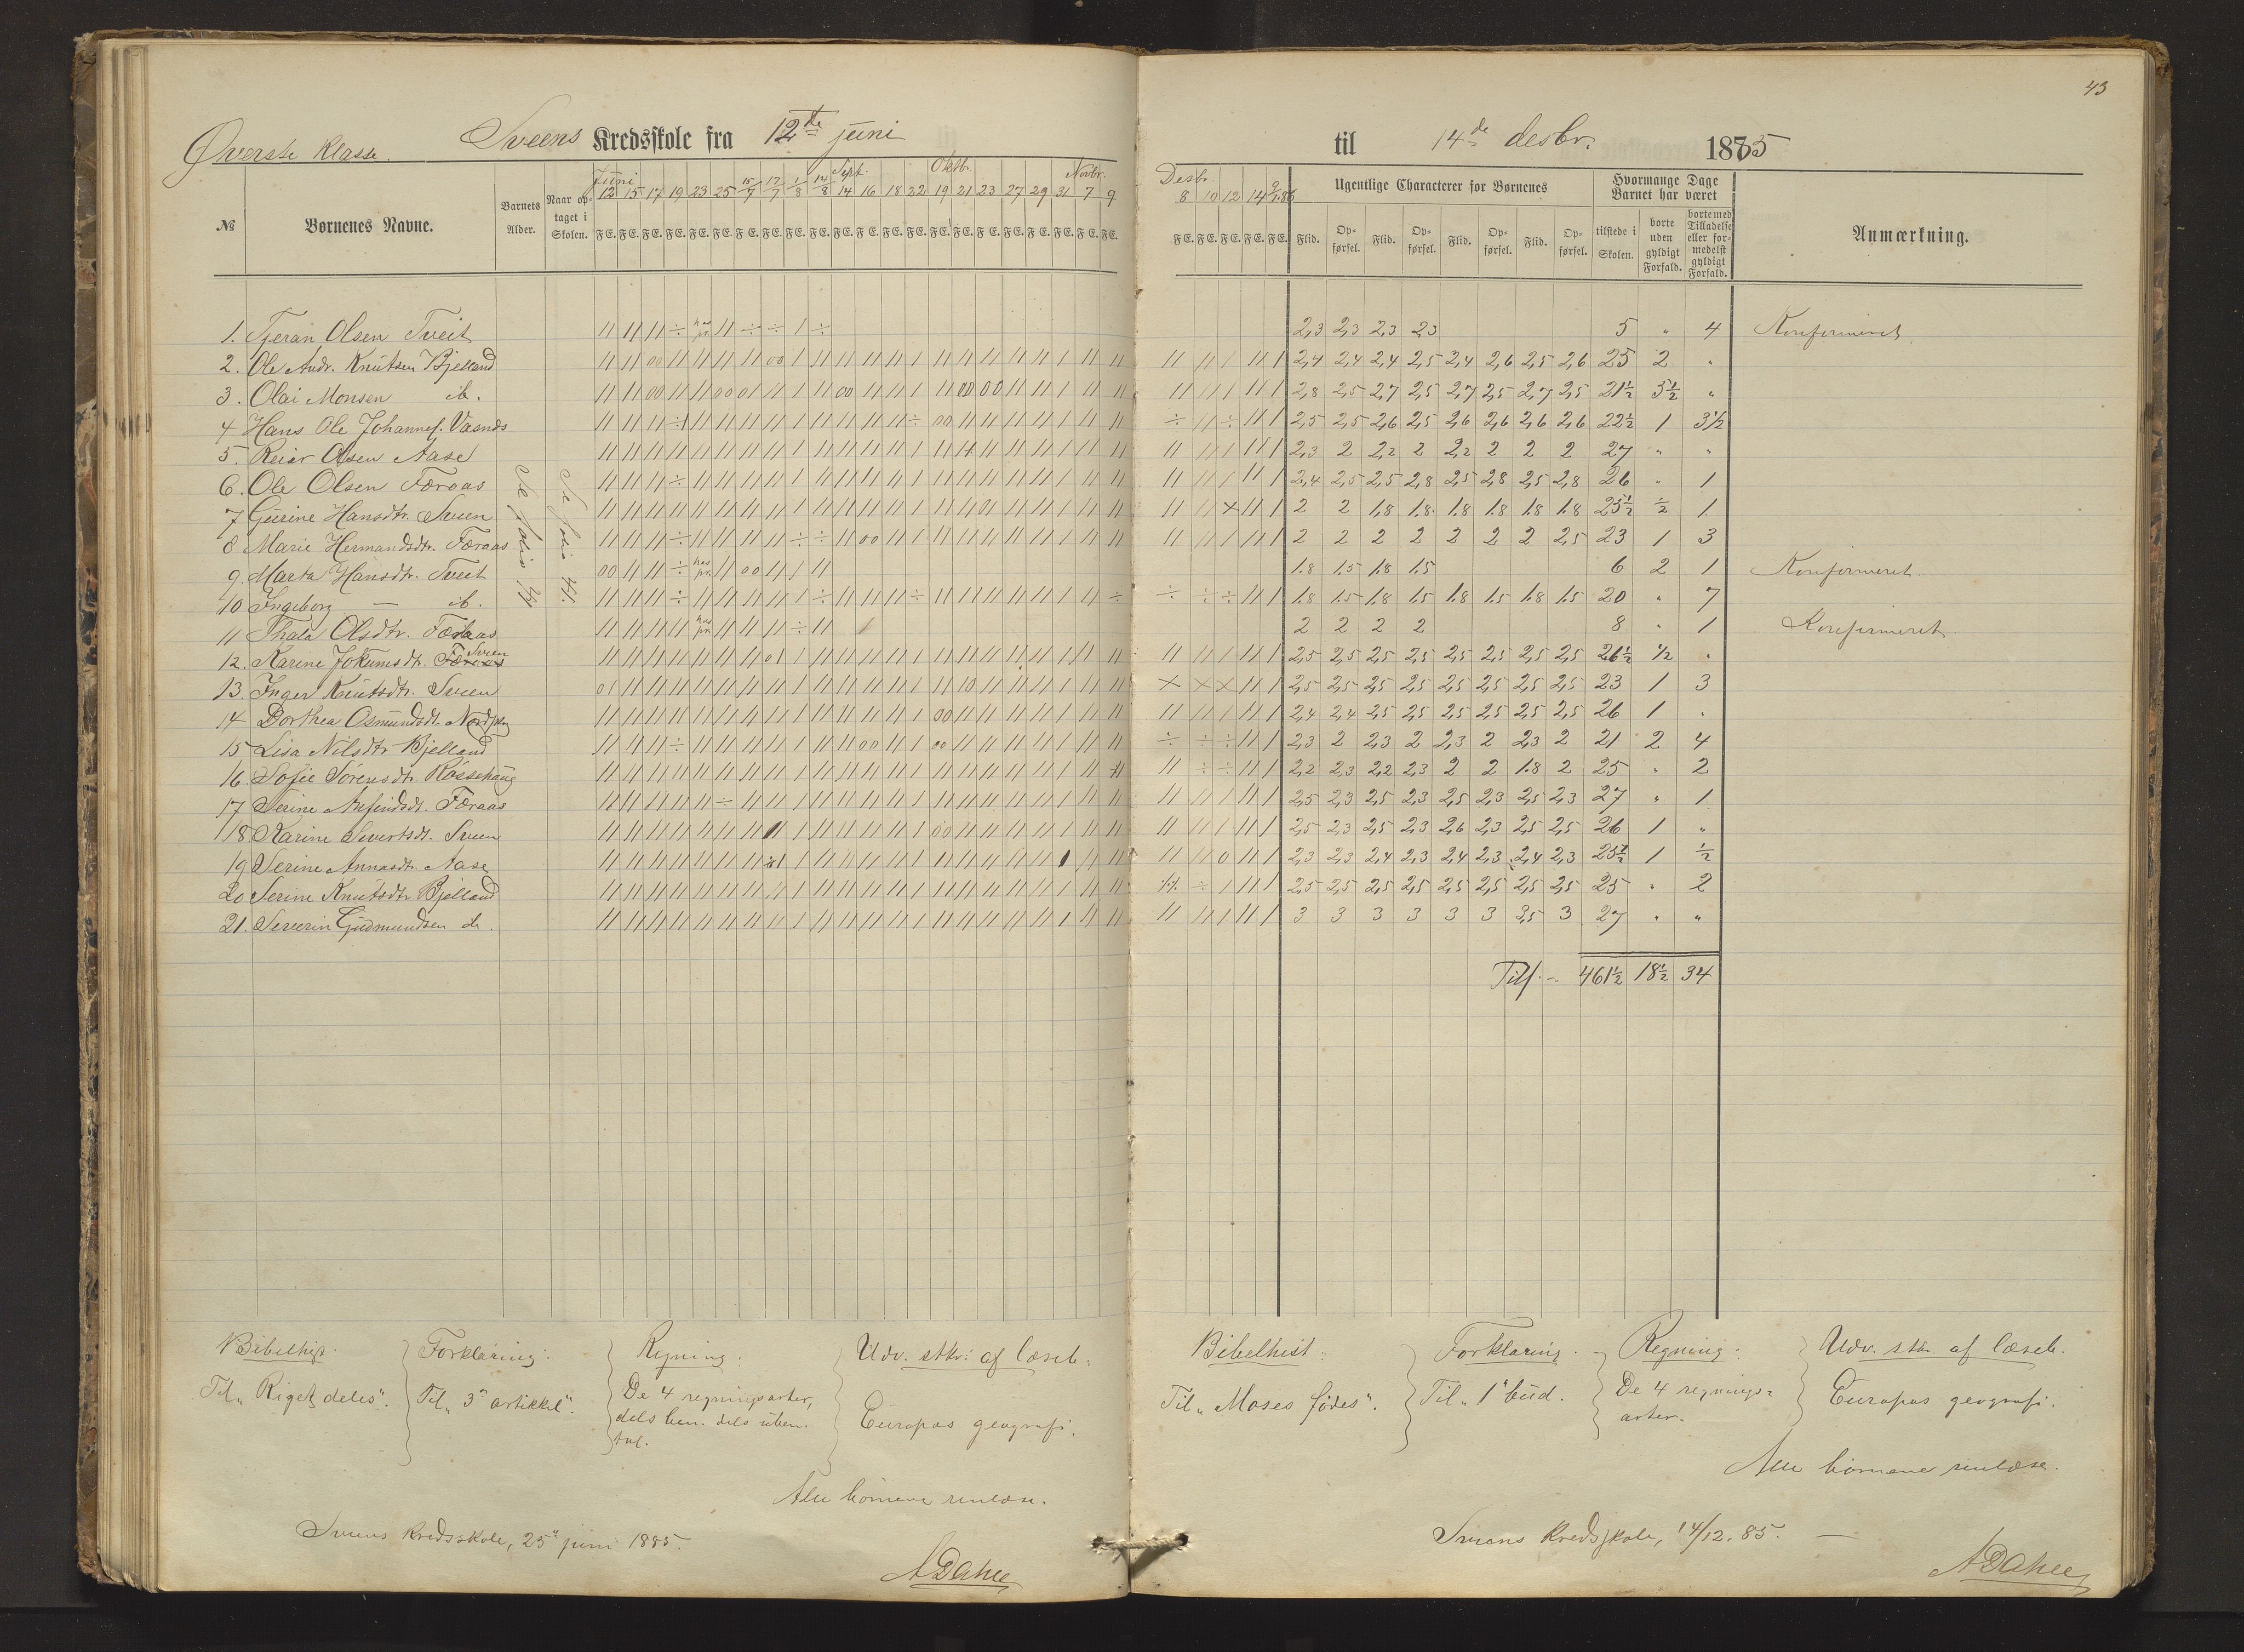 43
Øverste Klasse. Sveens Kredsskole fra 12te juni til 14de desbr. 1885
№ Børnenes Navne. Barnets Alder. Naar optaget i Skolen.
Juni Sept. Oktb. Novbr. Desbr.
12 15 17 19 23 25 15/7 17/7 1/8 14/8 14 16 18 22 19 21 23 27 29 31 7 9 8 10 12 14
F E. F E. F E. F E. F E. F E. F E. F E. F E. F E. F E. F E. F E. F E. F E. F E. F E. F E. F E. F E. F E. F E. F E. F E. F E. F E. F E.
Ugentlige Characterer for Børnenes
Flid. Opførsel. Flid. Opførsel. Flid. Opførsel. Flid. Opførsel.
Hvormange Dage Barnet har været
tilstede i Skolen. borte uden gyldigt Forfald. borte med Tilladelse eller formedelst gyldigt Forfald.
Anmærkning.
1. Tjeran Olsen Tveit 2,3 2,3 2,3 2,3 5 " 4 Konfirmeret
2. Ole Andr. Knutsen Bjelland 2,4 2,4 2,4 2,5 2,4 2,6 2,5 2,6 25 2 "
3. Olai Monsen ib. 2,8 2,5 2,7 2,5 2,7 2,5 2,7 2,5 21½ 5½ "
4 Hans Ole Johannes. 2,5 2,5 2,6 2,5 2,6 2,6 2,6 2,6 22½ 1 3½
5. Reiar Olsen Aase 2,3 2 2,2 2 2,2 2 2 2 27 " "
6. Ole Olsen Færaas 2,4 2,5 2,5 2,8 2,5 2,8 2,5 2,8 26 " 1
7 Gurine Hansdtr. Sveen 2 2 1.8 1.8 1.8 1.8 1.8 1.8 25½ ½ 1
8 Marie Hermandsdtr. Færaas 2 2 2 2 2 2 2 2,5 23 1 3
9. Marta Hansdtr. Tveit 1.8 1.5 1.8 1.5 6 2 1 Konfirmeret
10 Ingeborg — ib. 1.8 1.5 1.8 1.5 1.8 1.5 1.8 1.5 20 " 7
11 Thala Olsdtr. Færaas 2 2 2 2 8 " 1 Konfirmeret
12. Karine Jokumsdt. Færaas Sveen 2,5 2,5 2,5 2,5 2,5 2,5 2,5 2,5 26½ ½ "
13. Inger Knutsdtr. Sveen 2,5 2,5 2,5 2,5 2,5 2,5 2,5 2,5 23 1 3
14 Dorthea Osmundsdt. 2,4 2,4 2,5 2,5 2,5 2,5 2,5 2,5 26 1 "
15 Lisa Nilsdtr Bjelland 2,3 2 2,3 2 2,3 2 2,3 2 21 2 4
16. Sofie Sørensdt. Røssehaug 2,2 2,3 2,2 2,3 2 2 1.8 2 25 " 2
17 Serine Arfindsdt. Færaas 2,5 2,3 2,5 2,3 2,5 2,3 2,5 2,3 27 " 1
18 Karine Sivertsdt. Sveen 2,5 2,3 2,5 2,3 2,6 2,3 2,5 2,5 26 1 "
19 Serine Annasdtr Aase 2,3 2,3 2,4 2,3 2,4 2,3 2,4 2,3 25½ 1 ½
20 Serine Knutsdtr Bjelland 2,5 2,5 2,5 2,5 2,5 2,5 2,5 2,5 25 " 2
21. Severin Gudmundsen ib. 3 3 3 3 3 3 2,5 3 27 " "
Tils. 461½ 18½ 34
Bibelhist. Forklaring. Regning. Udv. stkr. af læseb.
Til „Riget deles". Til „3die artikkel". De 4 regningsarter, dels ben. dels uben. tal. Europas geografi.
Alle børnene renlæse.
Sveens kredsskole, 25de juni 1885.
A Dahle
Bibelhist. Forklaring. Regning. Udv. stkr. af læseb.
Til „Moses fødes". Til „1ste bud. De 4 regnings-arter. Europas geografi.
Alle børnene renlæse.
Sveens kredsskole, 14/12. 85. —
A Dahle